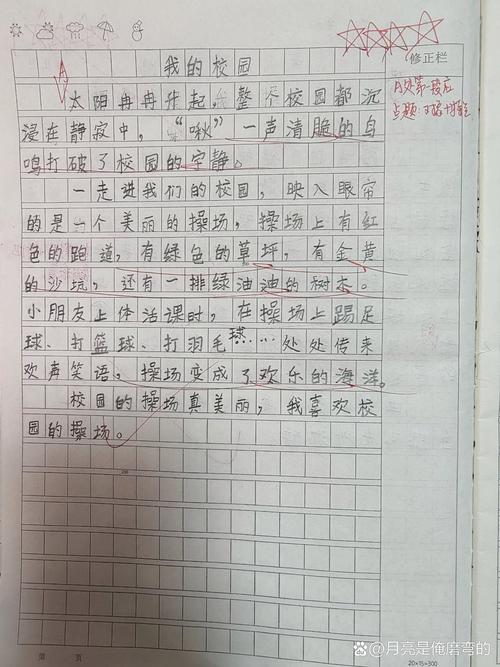 修正栏
我的校园
太阳冉冉升起，整个校园都沉
浸在静寂中，“啾”一声清脆的鸟
鸣打破了校园的宁静。
一走进我们的校园，映入眼帘
的是一个美丽的操场，操场上有红
色的跑道，有绿色的草坪，有金黄
的沙坑，还有一排绿油油的树木。
小朋友上体活课时，在操场上踢足
球、打篮球、打羽毛球……处处传来
欢声笑语，操场变成了欢乐的海洋。
校园的操场真美丽，我喜欢校
园的操场。
A处第一段应
点题
第 页
20×15=300
百家号/月亮是俺磨弯的